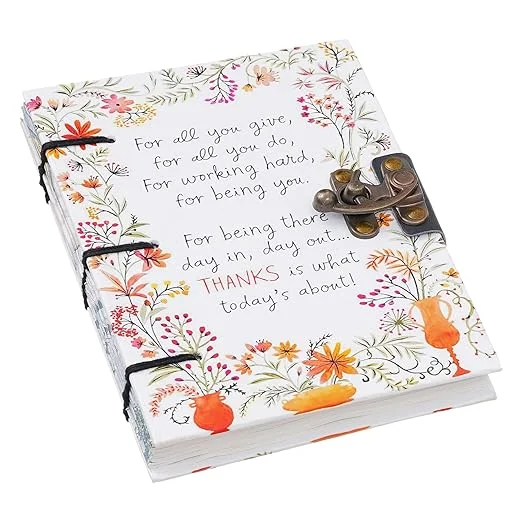 For all you give,
for all you do,
For working hard,
for being you.
For being there
day in, day out...
THANKS is what
today's about!